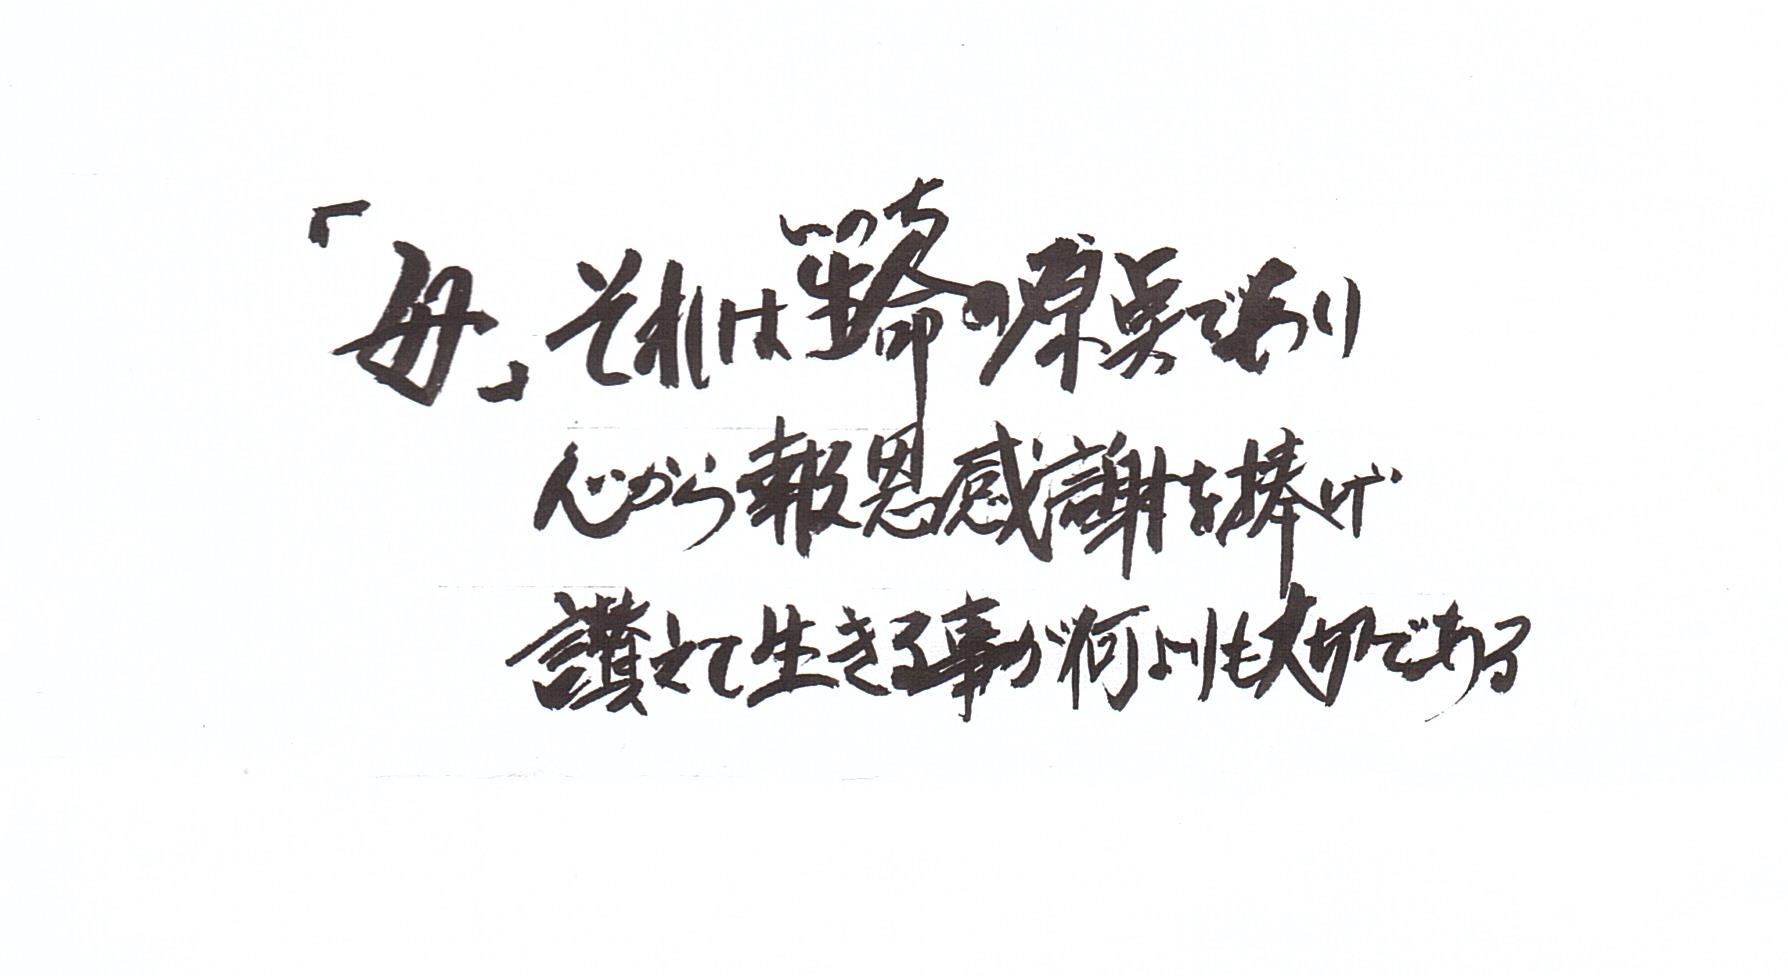 「母」それは生命の原点であり
いのち
心から報恩感謝を捧げ
讃えて生きる事が何よりも大切である